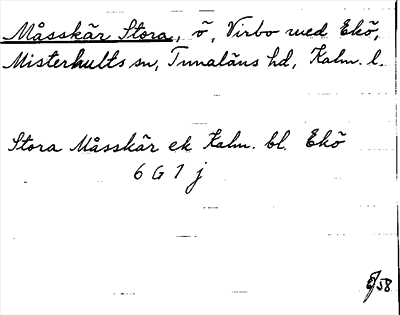 Måsskär Stora, ö, Virbo med Ekö,
Misterhults sn, Tunaläns hd, Kalm. l.
Stora Måsskär ek Kalm. bl. Ekö
6 G 7 j
58